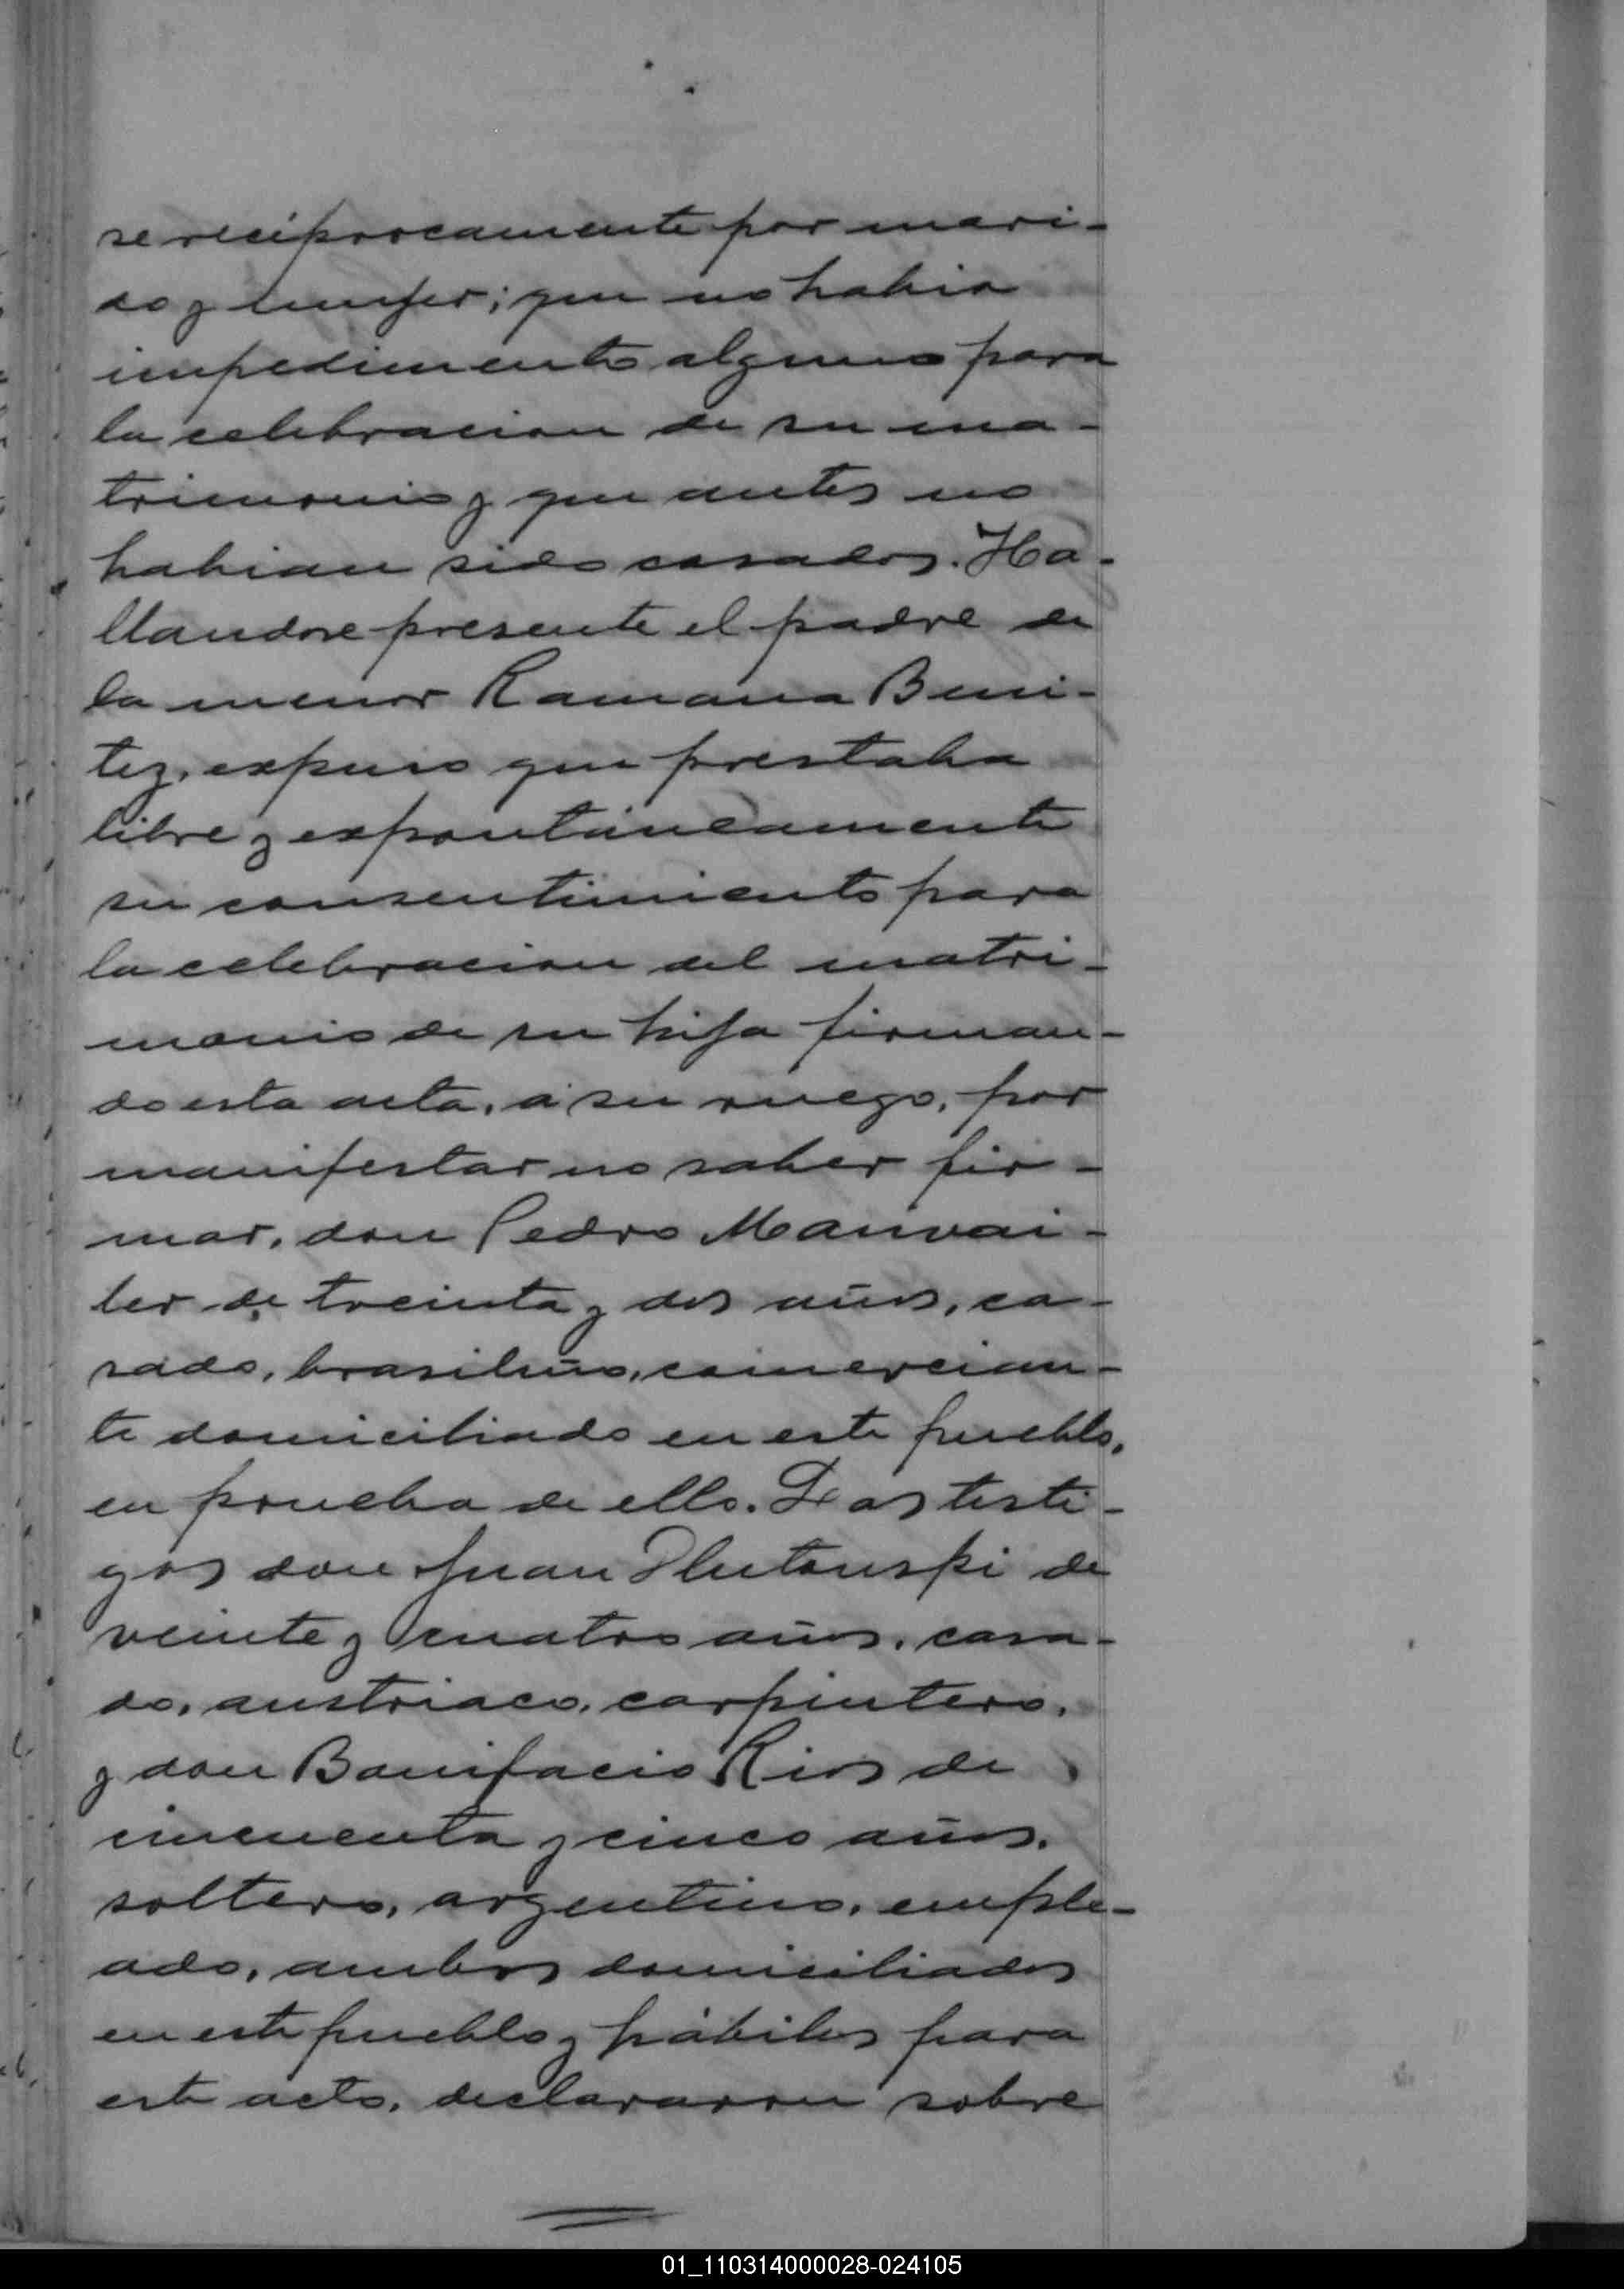 se reciprocamente por mari-
do y mujer; que no habia
impedimento alguno para
la celebracion de su ma-
trimonio y que antes no
habian sido casados. Ha-
llandose presente el padre de
la menor Ramona Beni-
tez, expuso que prestaba
libre y espontáneamente
su consentimiento para
la celebracion del matri-
monio de su hija firman-
do esta acta, a su ruego, por
manifestar no saber fir-
mar, don Pedro
de treinta y dos años, ca-
sado, brasileño, comercian-
te domiciliado en este pueblo,
en prueba de ello. Los testi-
gos don Juan de
veinte y cuatro años, casa-
do, austriaco, carpintero,
y don Bonifacio Rios de
cincuenta y cinco años,
soltero, argentino, emple-
ado, ambos domiciliados
en este pueblo y hábiles para
este acto, declararon sobre
01_110314000028-024105